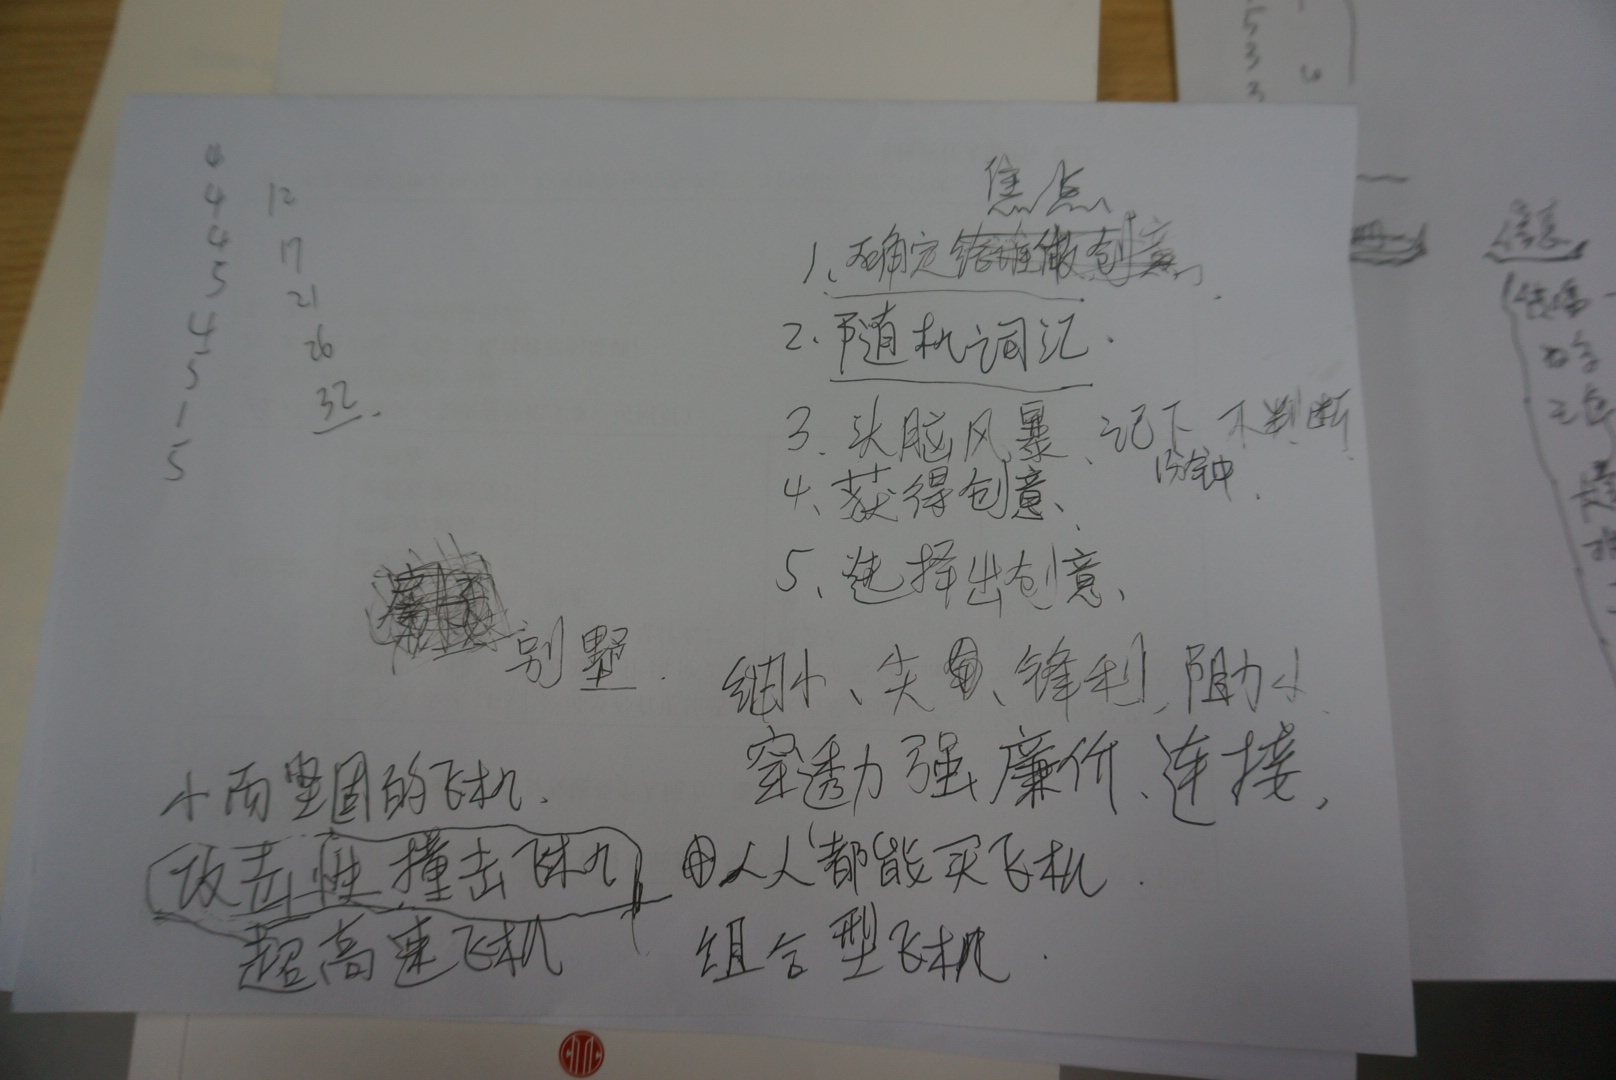 4
4 12
4 17
5 21
4 26
5 32.
1
5
焦点
1、确定给谁做创意
2.随机词汇.
3.头脑风暴、记下 不判断
1分钟.
4、获得创意、
5、选择出创意、
别墅.
细小、尖、锋利,阻力小
穿透力强,廉价、连接,
小而坚固的飞机.
攻击性撞击飞机
人人都能买飞机.
超高速飞机
组合型飞机.
5
3
3
信息